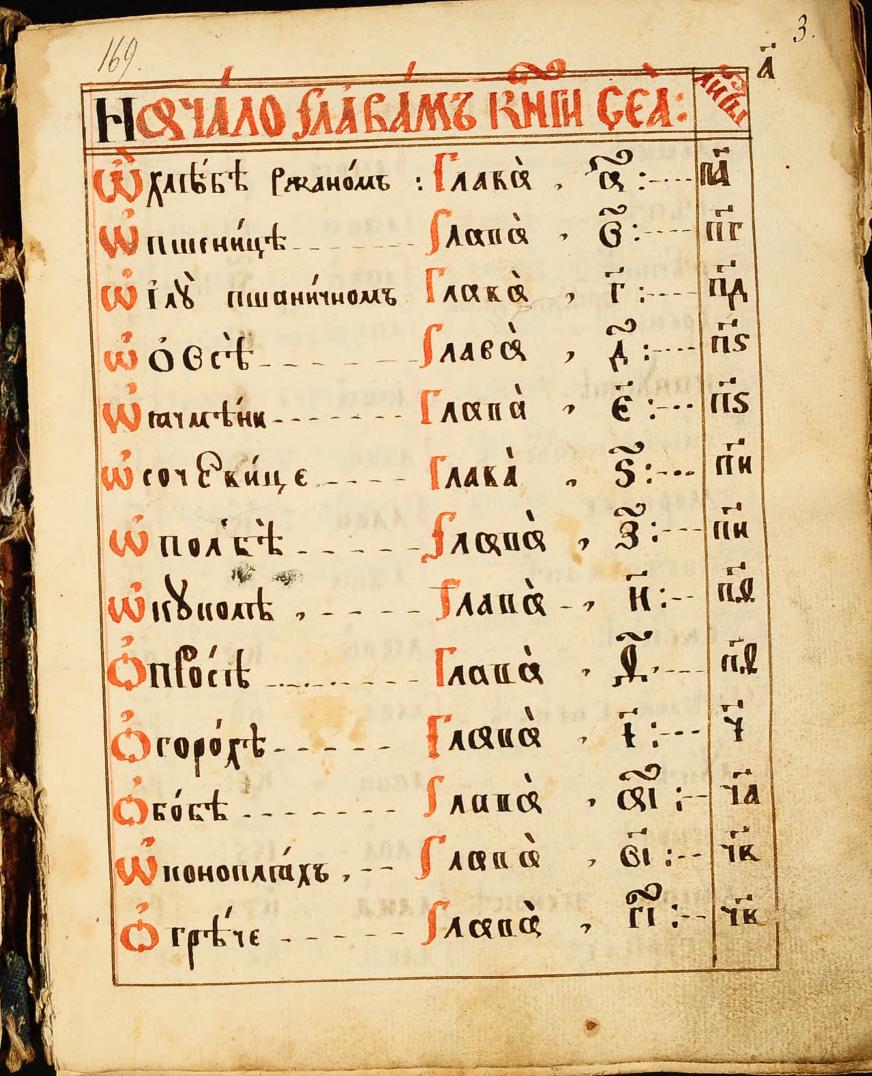 169.
3.
а҃
Начало главамъ книги сеѧ: листы
Ѡ хлѣбѣ ржаномъ : Глава , а҃ : па҃
Ѡ пшеницѣ Глава , в҃ : пг҃
Ѡ илꙋ пшаничномъ Глава , г҃ : пд҃
Ѡ овсѣ Глава , д҃ : пѕ҃
Ѡ ꙗчмѣни Глава , е҃ : пѕ҃
Ѡ сочевице Глава , ѕ҃ : пи҃
Ѡ полбѣ Глава , з҃ : пи҃
Ѡ кꙋколѣ , Глава , и҃ : пѳ҃
Ѡ просѣ Глава , ѳ҃ . пѳ҃
Ѡ горохѣ Глава , і҃ : ч҃
Ѡ бобѣ Глава , аі҃ : ча҃
Ѡ коноплѧхъ , Глава , ві҃ : чв҃
Ѡ грѣче Глава , гі҃ : чв҃